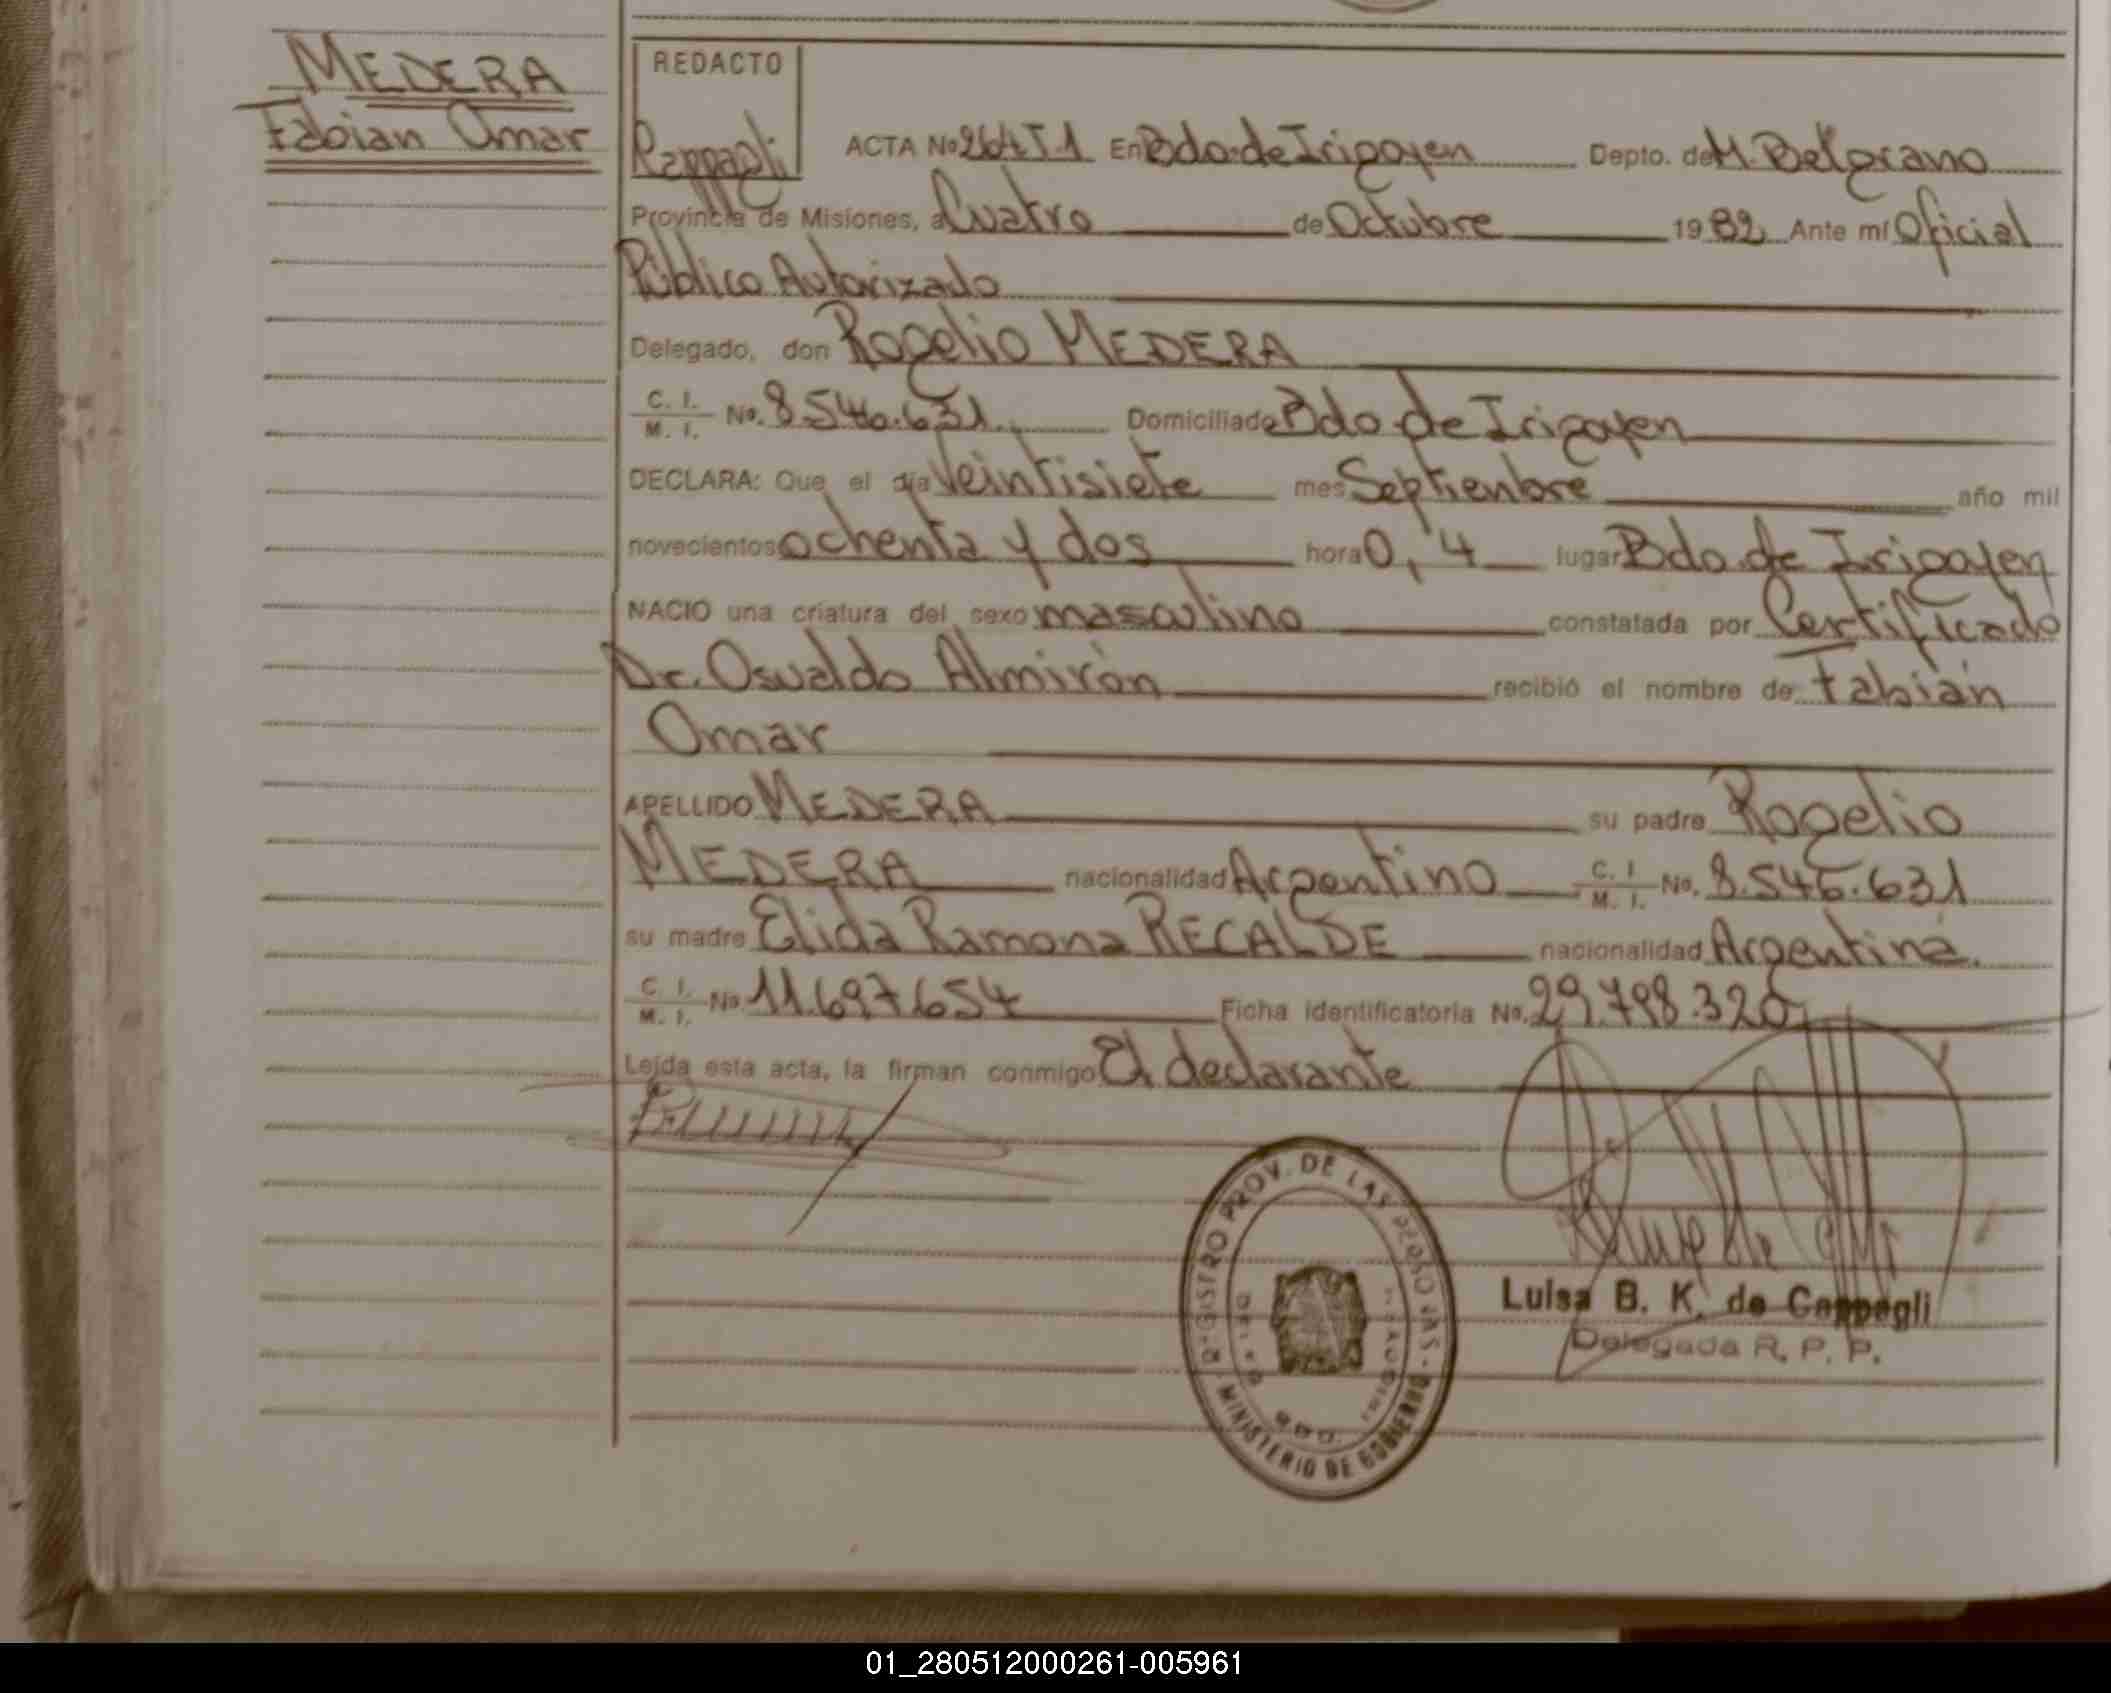 MEDERA
Fabian Omar
REDACTO
Cappagli
ACTA No 264 T.1 En Bdo. de Irigoyen Depto. de M. Belgrano
Provincia de Misiones, a Cuatro de Octubre 1982 Ante mí Oficial
Público Autorizado
Delegado, don Rogelio MEDERA
C. I. / M. I. No. 8.546.631. Domiciliado Bdo de Irigoyen
DECLARA: Que el día Veintisiete mes Septiembre año mil
novecientos ochenta y dos hora 0,'4 lugar Bdo. de Irigoyen
NACIO una criatura del sexo masculino constatada por Certificado
Dr. Osvaldo Almirón recibió el nombre de Fabián
Omar
APELLIDO MEDERA su padre Rogelio
MEDERA nacionalidad Argentino C. I / M. I. No. 8.546.631
su madre Elida Ramona RECALDE nacionalidad Argentina.
C I. / M. I. No. 11.697.654 Ficha identificatoria No. 29.798.320
Leída esta acta, la firman conmigo El declarante
REGISTRO PROV. DE LAS PERSONAS - MINISTERIO DE GOBIERNO
Luisa B. K. de Cappagli
Delegada R. P. P.
01_280512000261-005961